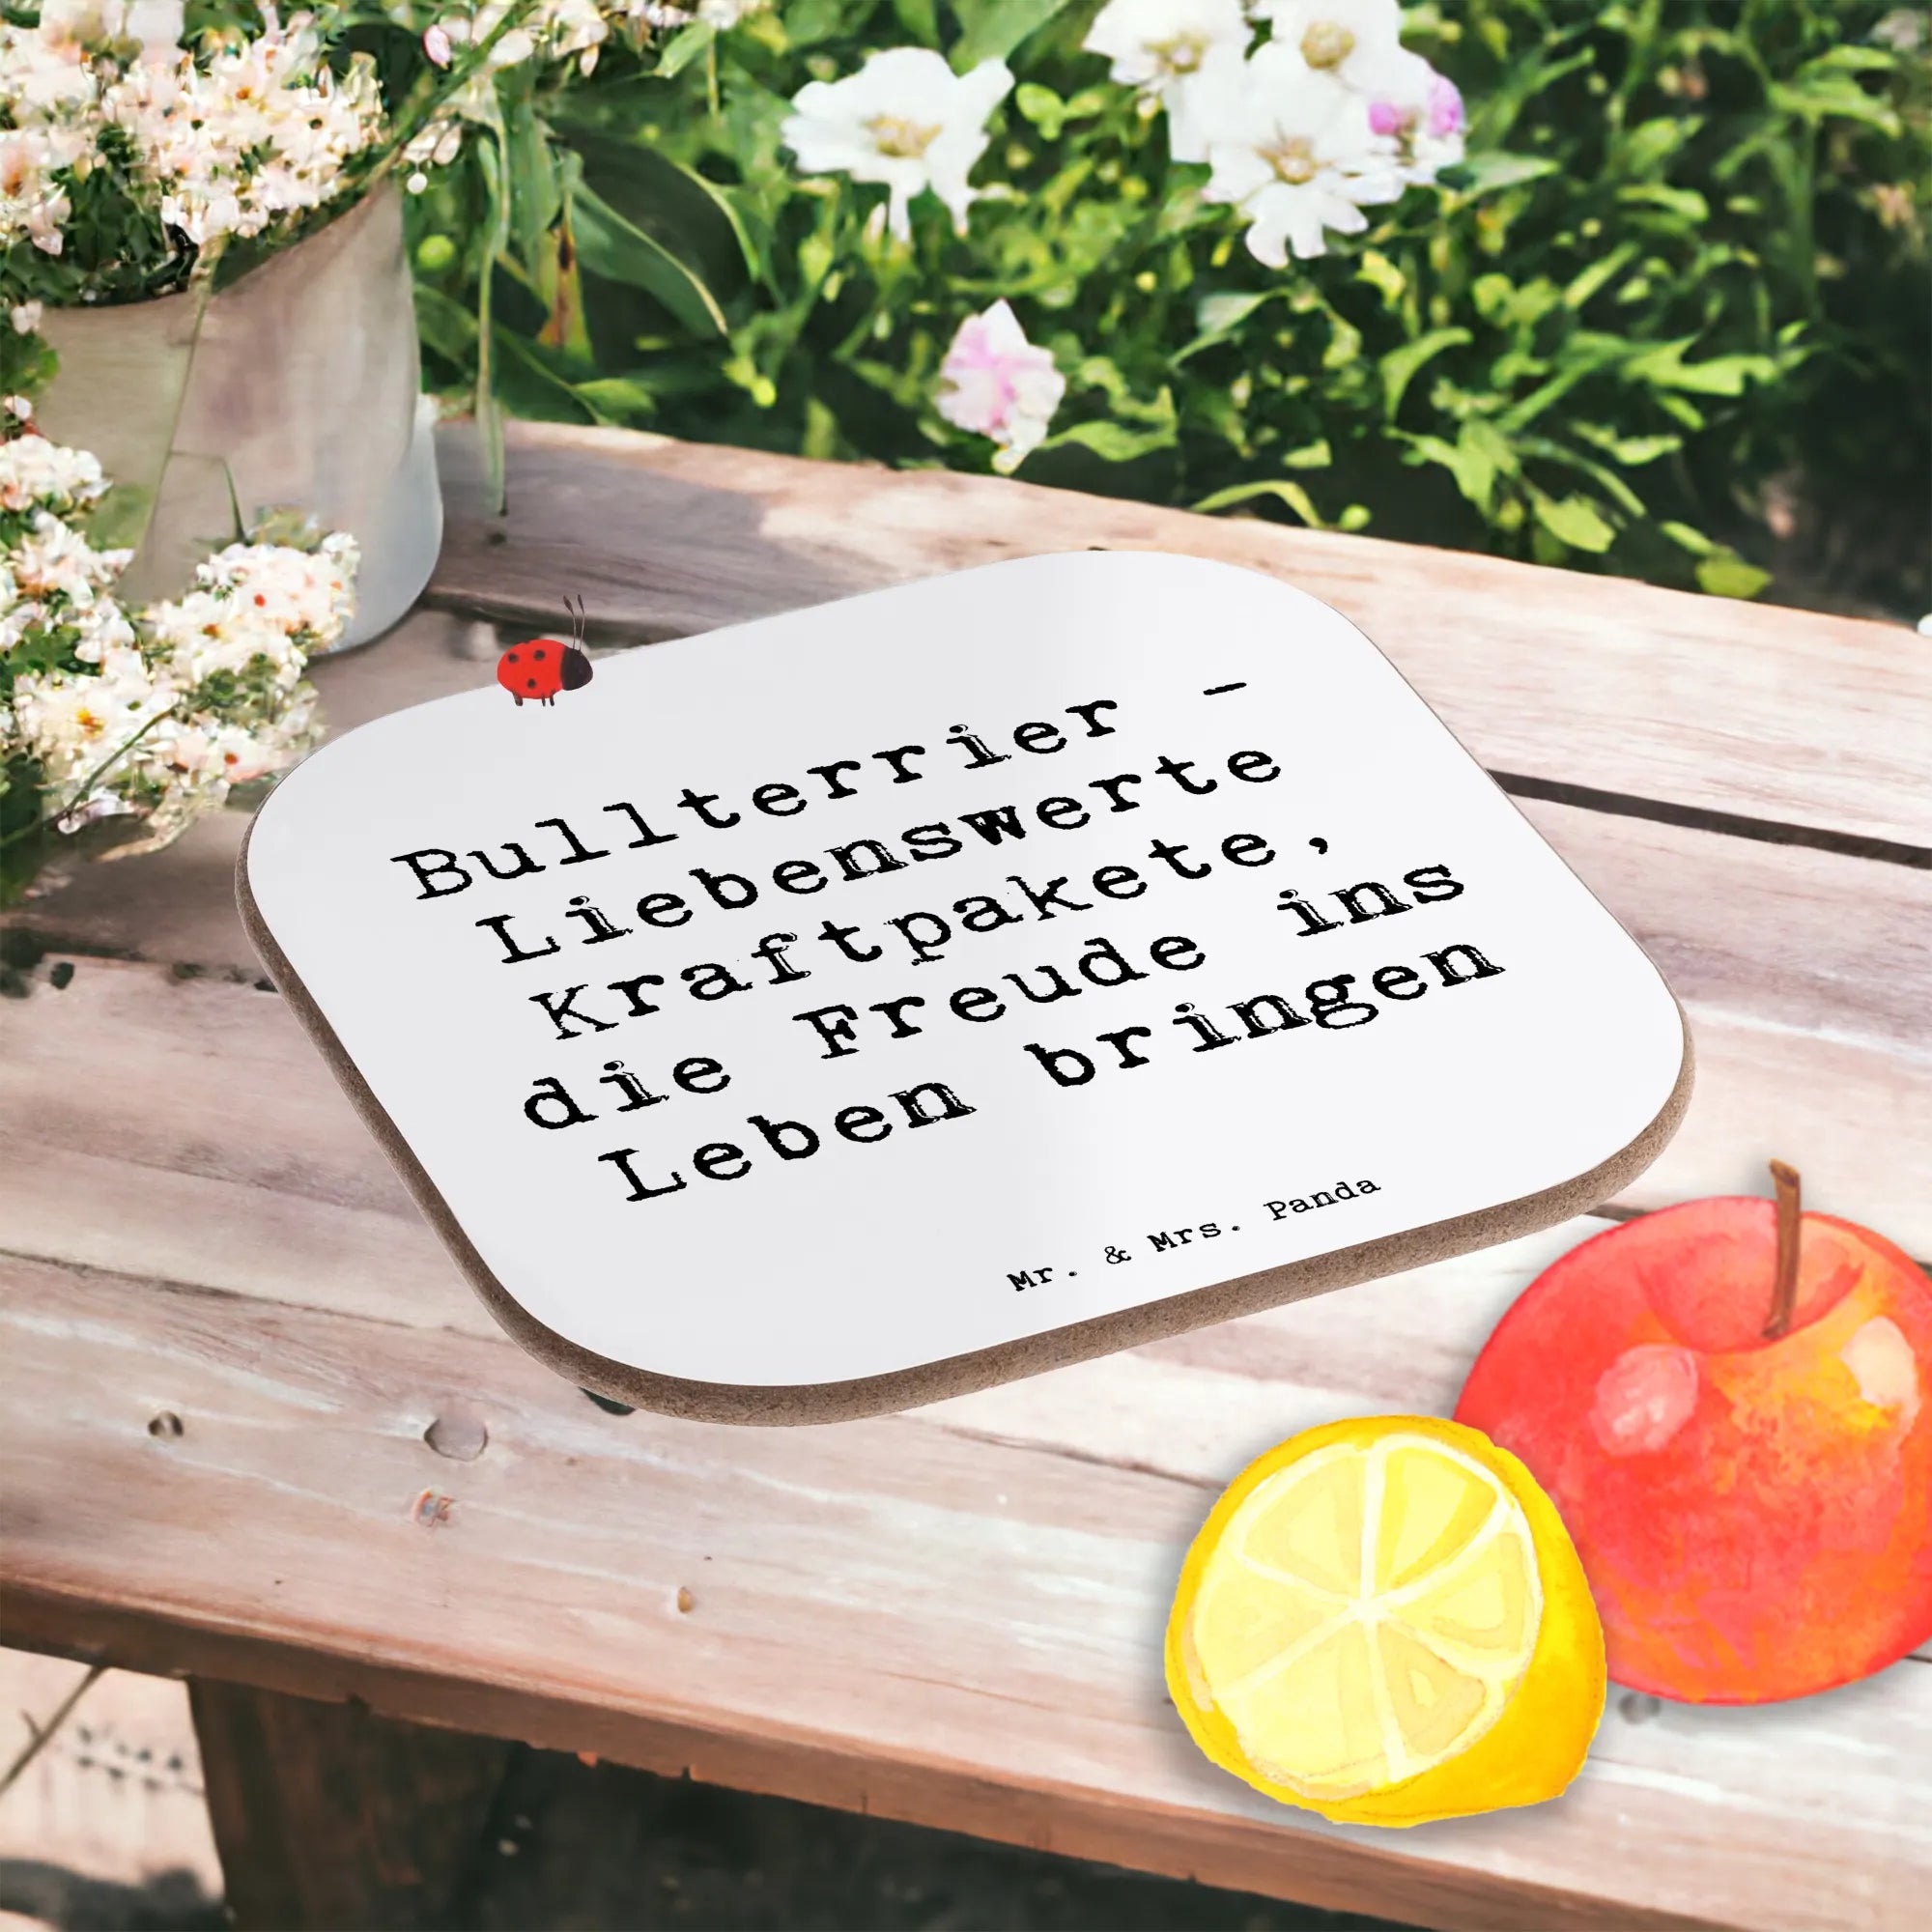 Bullterrier -
Liebenswerte
Kraftpakete,
die Freude ins
Leben bringen
Mr. & Mrs. Panda